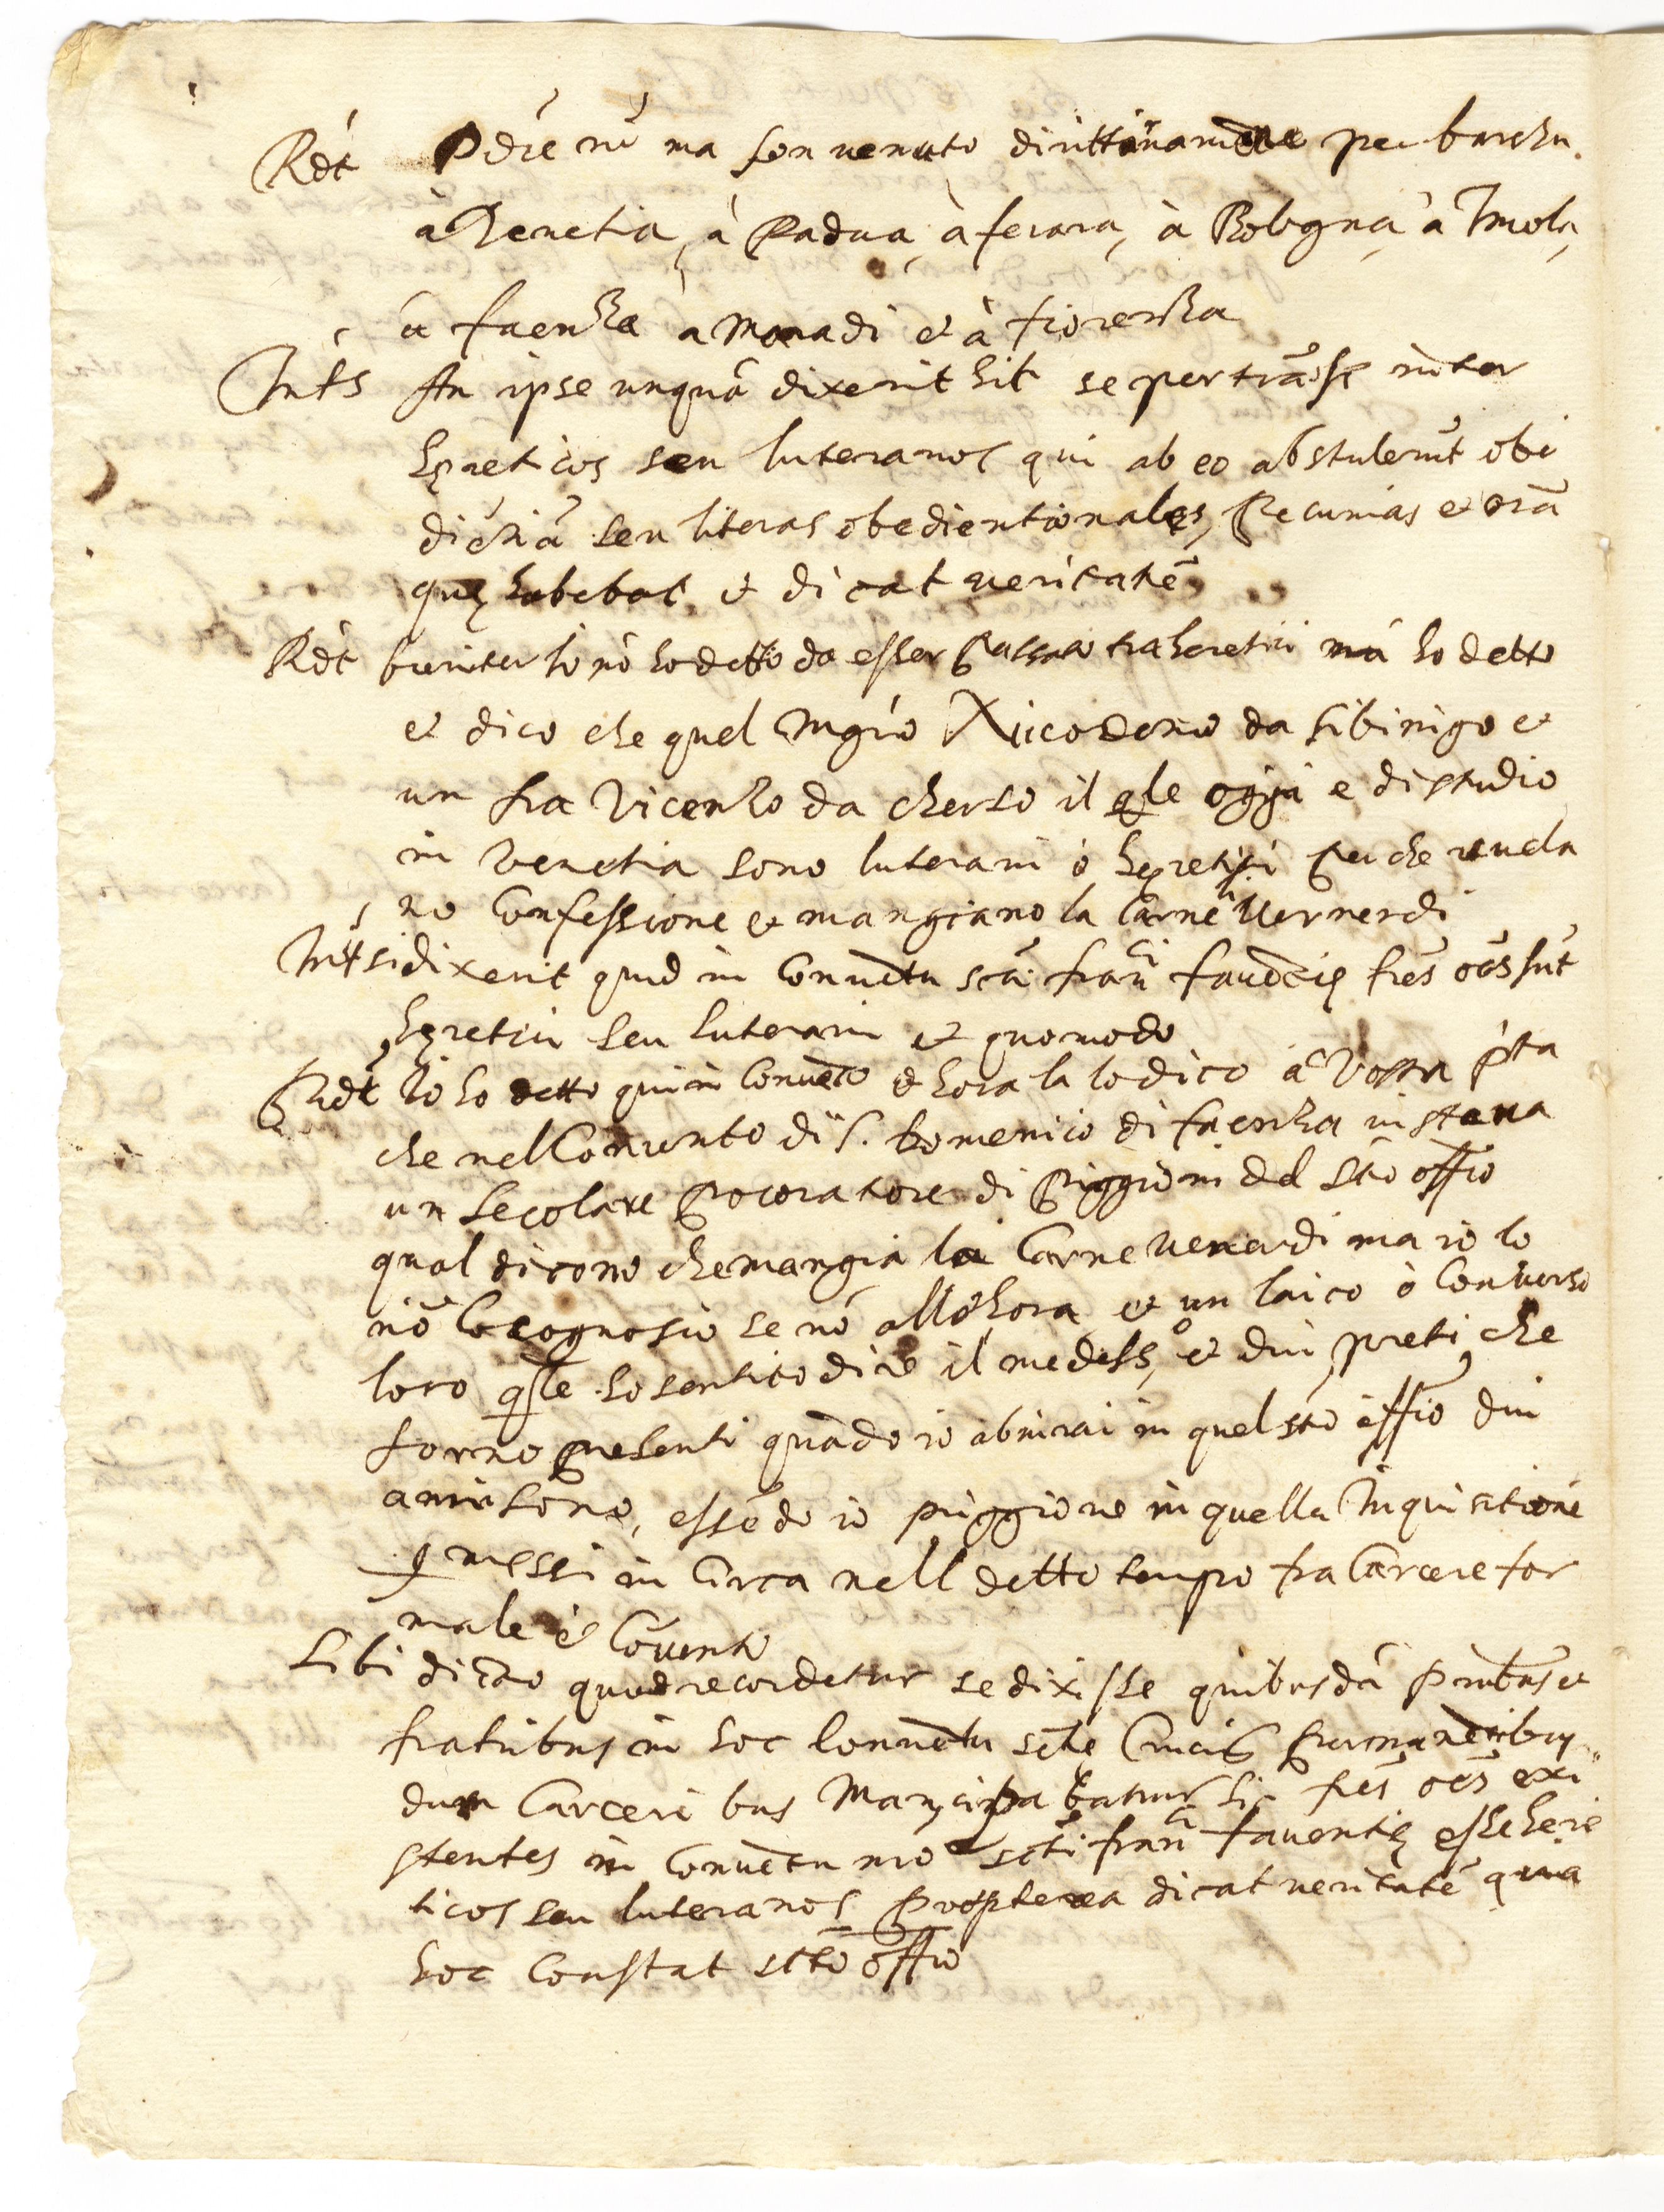 Rdt Pdre nō ma son uenuto dirittamamēte per barcha
à Venetia, à Padua, à ferara, à Bologna, à Imola,
à faenza a Maradi et à fiorenza
Ints An ipse unquā dixerit hic se pertrāsse inter
hęreticos seu luteranos qui ab eo abstulerūt obe
diētiā seu literas obedientionales, pecunias et oīa
quę habebat et dicat ueritatē
Rdt Io nō ho detto da esser passato tra heretici ma ho detto
et dico che quel Mgrō Nicodemo da sibinigo et
un fra Vicenzo da cherso il qle oggi e di studio
in Venetia sono luterani ò hęretici per che reuela
no Confessione et mangiano la Carne il Vernerdi
Int si dixerit quod in Conuētu scti franci fauētię frēs oēs sūt
hęretici seu luterani et quomodo
Rdt Io ho detto qui in Conuēto et hora la lo dico à Vossra pta
che nel Conuento di S. Domenico di faenza ui staua
un secolare procoratore di priggioni del sto offio
qual dicono che mangia la Carne Venerdi ma io lo
nō lo cognoscio se nō allhora et un laico ò Conuerso
loro qle ho sentito dire il medess,o et dui preti che
forno presenti quādo io abiurai in quel sto offio dui
anni sono, essēdo io priggione in quella Inquisitione
messi in Circa nell detto tempo fra Carcere for
male è Cōuento
Sibi dicto quod recordetur se dixisse quibusdā prībus et
fratribus in hoc Conuētu sctę Crucis permanētibus
dum Carceribus Mancipabatur hic frēs oēs exi
stentes in Conuētu nro scti franci fauentię esse here
ticos seu luteranos propterea dicat ueritatē quia
hoc Constat scto offio